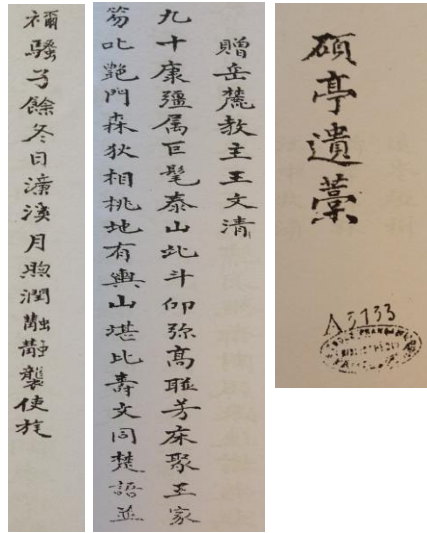 碩亭遺藁
A3133
贈岳麓教主王文清
九十康彊属巨髦泰山北斗仰弥高聮芳床聚王家
笏吐艷門森狄相桃地有輿山堪比壽文同楚語並
穪騷分餘冬日濂溪月煦潤融靜襲使旄